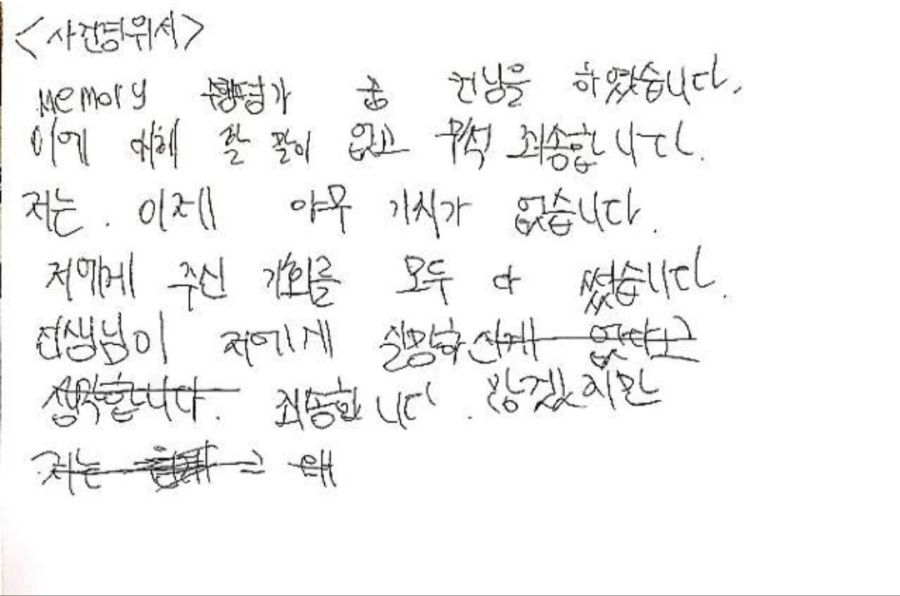 <사건경위서>
Memory 수행평가 중 컨닝을 하였습니다.
이에 대해 할 말이 없고 무척 죄송합니다.
저는. 이제 아무 가치가 없습니다.
저에게 주신 기회를 모두 다 썼습니다.
선생님이 저에게 실망하신게 없다고
생각합니다. 죄송합니다. 많겠지만
저는 그 왜